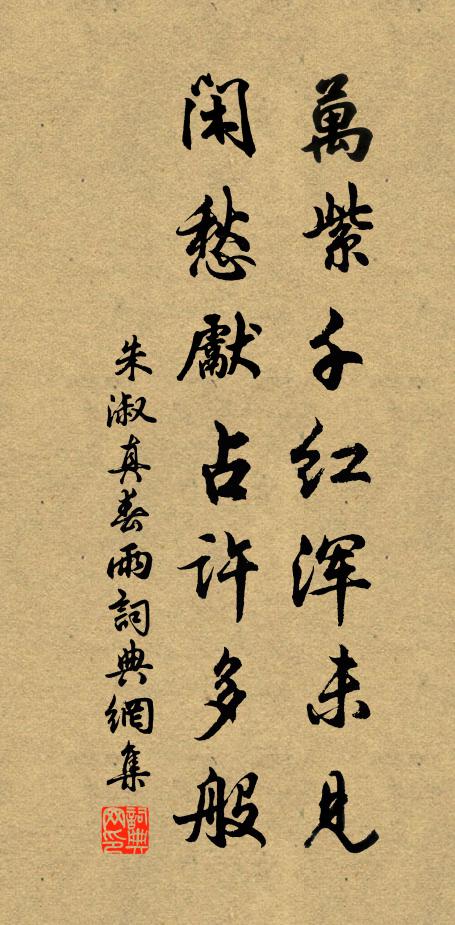 萬紫千红浑未見
閑愁獻占许多般
朱淑真春雨詞典網集
詞典网印